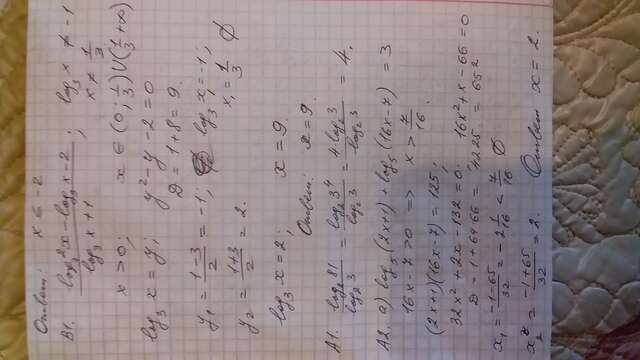 Ответ: x ∈ -2
В1. (log₃²x - log₃x - 2) / (log₃x + 1) ; log₃x ≠ -1
x ≠ 1/3
x > 0; x ∈ (0; 1/3) ∪ (1/3 +∞)
log₃x = y; y² - y - 2 = 0
D = 1 + 8 = 9.
y₁ = (1-3)/2 = -1; log₃x = -1;
x₁ = 1/3 ∅
y₂ = (1+3)/2 = 2.
log₃x = 2; x = 9.
Ответ: x = 9.
А1. log₂81 / log₂3 = log₂3⁴ / log₂3 = 4·log₂3 / log₂3 = 4.
А2. а) log₅(2x+1) + log₅(16x-7) = 3
16x - 7 > 0 => x > 7/16.
(2x+1)(16x-7) = 125;
32x² + 2x - 132 = 0; 16x² + x - 66 = 0
D = 1 + 64·66 = 4225 = 65²
x₁ = (-1-65)/32 = -2 1/16 < 7/16 ∅
x₂ = (-1+65)/32 = 2. Ответ x = 2.